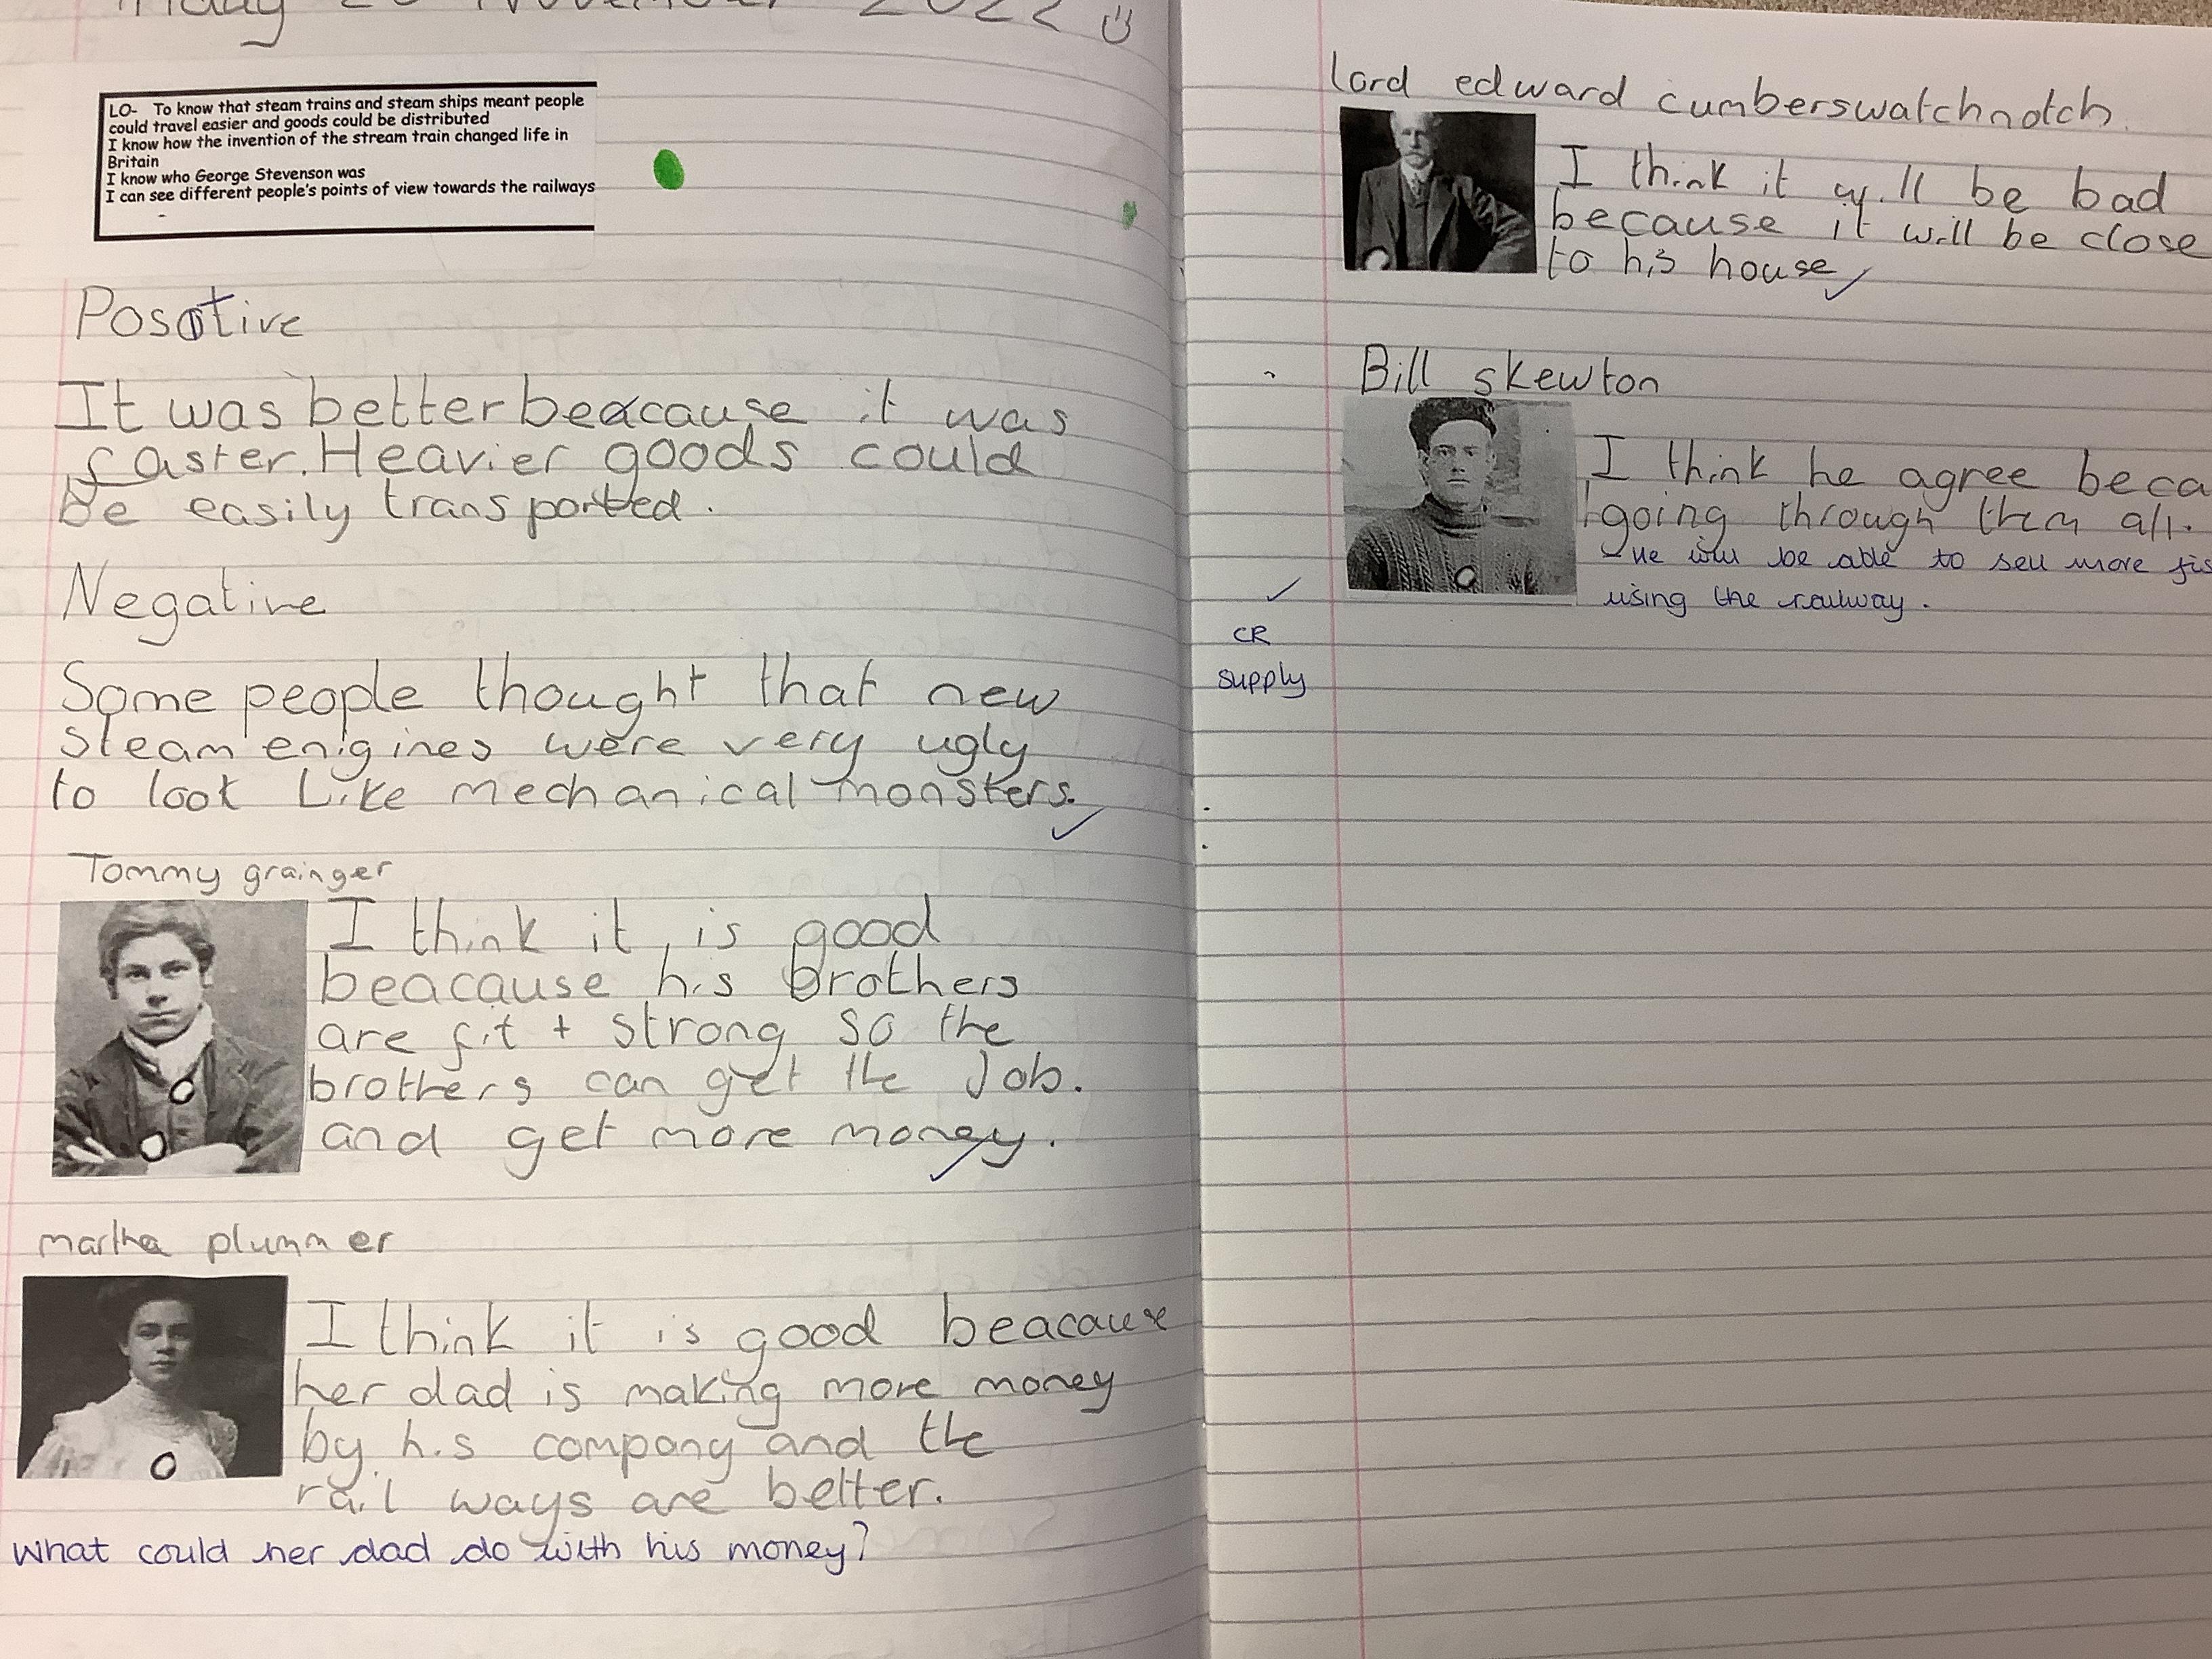 November 2022
LO- To know that steam trains and steam ships meant people
could travel easier and goods could be distributed
I know how the invention of the stream train changed life in
Britain
I know who George Stevenson was
I can see different people's points of view towards the railways
-
Positive
It was better beacause it was
faster. Heavier goods could
be easily transported.
Negative
Some people thought that new
steam enigines were very ugly
to look Like mechanical monsters.
Tommy grainger
I think it is good
beacause his brothers
are fit + strong so the
brothers can get the Job.
and get more money.
martha plummer
I think it is good beacause
her dad is making more money
by his company and the
rail ways are better.
What could her dad do with his money?
lord edward cumberswatchnotch.
I think it will be bad
because it will be close
to his house
Bill skewton
I think he agree beca
going through them all.
He will be able to sell more fis
using the railway.
CR
supply